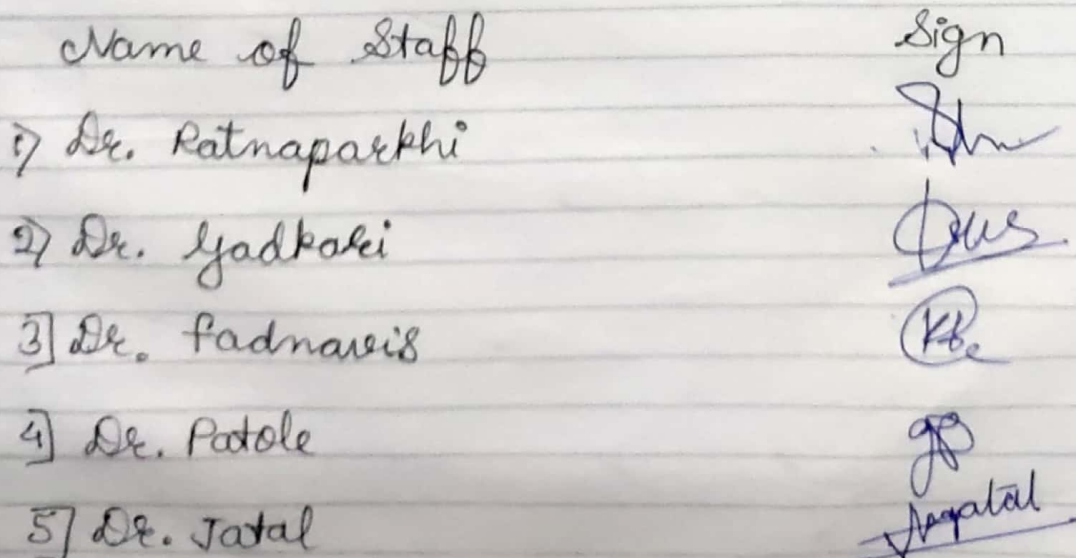 Name of Staff Sign
1) Dr. Ratnaparkhi
2) Dr. Gadkari
3] Dr. Fadnavis
4] Dr. Patole
5] Dr. Jatal